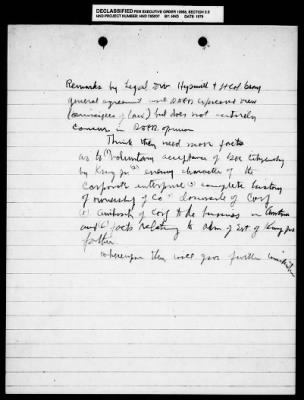 DECLASSIFIED PER EXECUTIVE ORDER 12958, SECTION 3.5
NND PROJECT NUMBER: NND 765007 BY: NND DATE: 1978
Remarks by Legal Div
general agreement with expressed view
(conveyances of law) but does not entirely
concur in opinion
Think they need more facts
as to (1) voluntary acceptance of citizenship
by Krug jr (2) enemy character of the
corporate enterprise (3) complete history
of ownership of Co (4) domicile of Corp
(5) authority of Corp to do business in Austria
and (6) facts relating to adm of Est of Krug jrs
father
whereupon they will give further